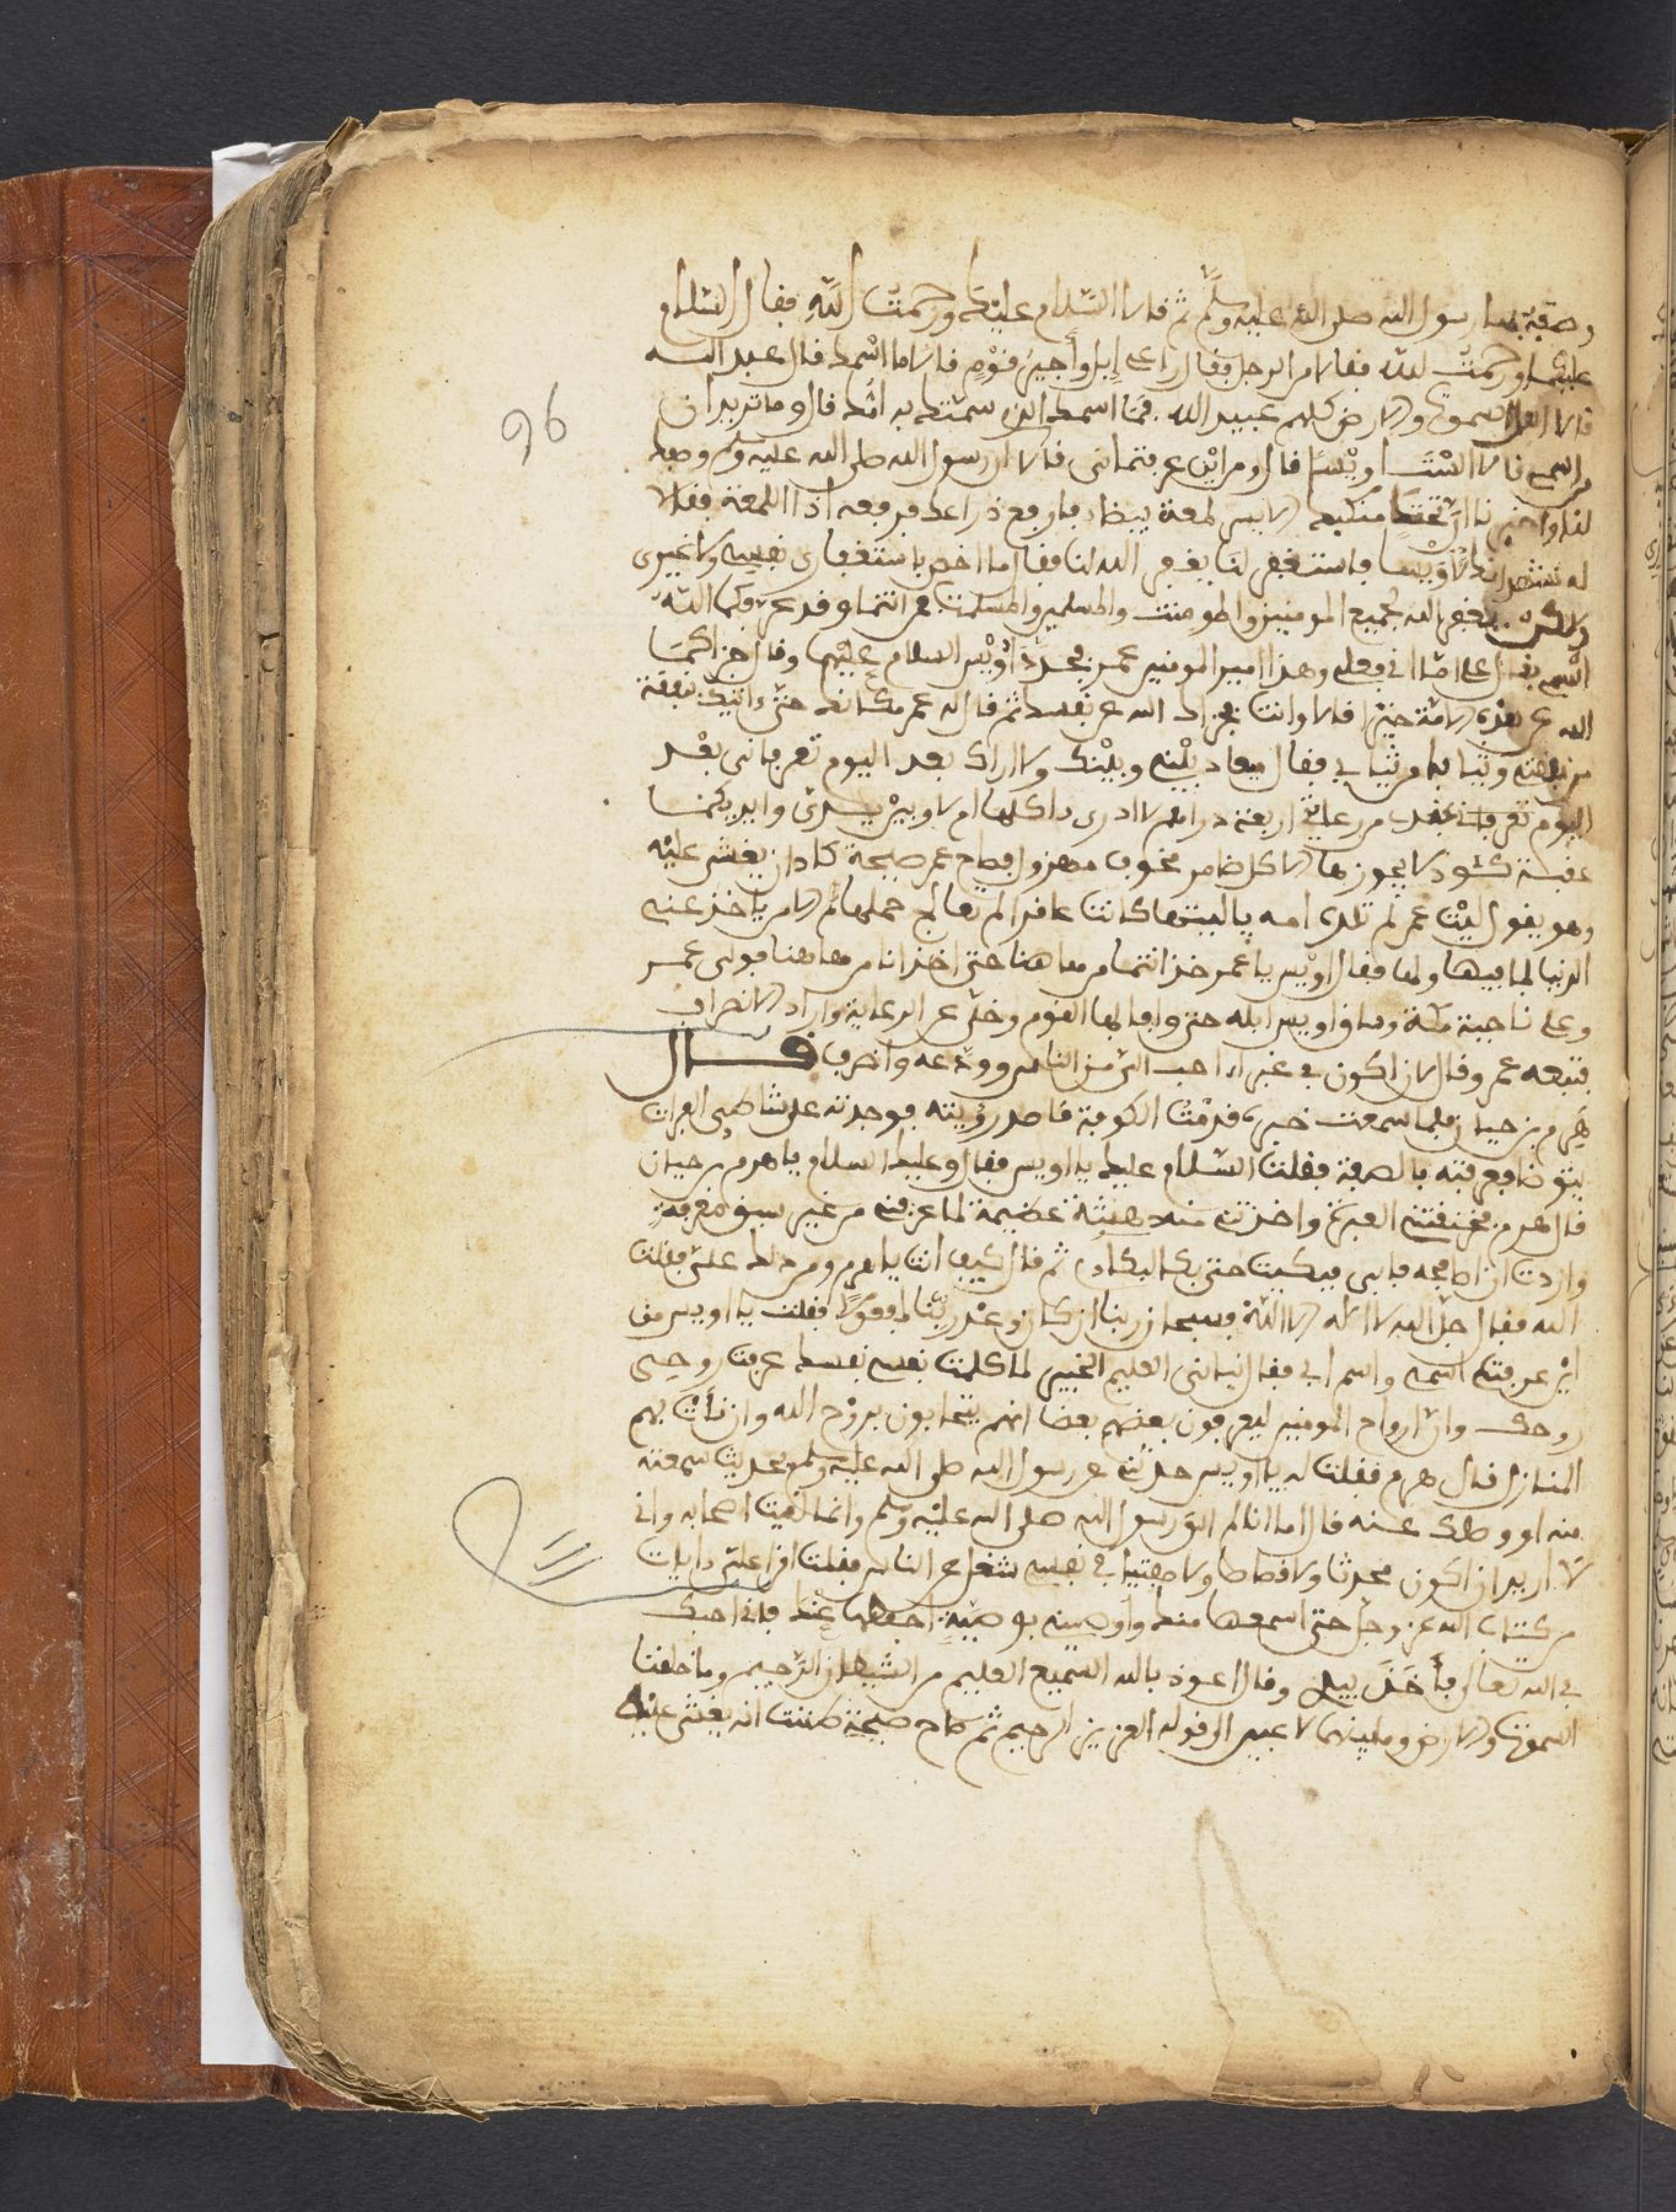 وصفة بها رسول الله صلى الله عليه وسلم ثم قالا السلام عليك ورحمت الله فقال السلام
عليكما ورحمت الله فقالا من الرجل فقال راعى إبل وأجير قوم قالا ما اسمك قال عبد الله
قالا اهل السموت والارض كلهم عبيد الله فما اسمك الذي سمتك به امك قال وما تريدان
من اسمي قالا الست اويسا قال ومن اين عرفتماني قالا ان رسول الله صلى الله عليه وسلم وصفك
لنا واخبرنا ان تحت منكبك الايسر لمعة بيضاء فارفع ذراعك فرفعه اذا اللمعة فقالا
له نشهد انك لأويسا فاستغفر لنا يغفر الله لنا فقال ما اخص باستغفاري نفسي ولا غيري
ولكن يغفر الله لجميع المومنين والمومنت والمسلمين والمسلمت من انتما وقد عرفكما الله
اسمي فقال علي امّا اني فعلي وهذا امير المومنين عمر فجدد اويس السلام عليهما وقال جزاكما
الله عن هذه الامة خيرا قالا وانت فجزاك الله عن نفسك ثم قال له عمر مكانك حتى ءاتيك بنفقة
من نفقتي وثيابا من ثيابي فقال ميعاد بيني وبينك ولا اراك بعد اليوم تعرفاني بعد
اليوم من رعايتي اربعة دراهم لا ادري ءاكلها ام لا وبين يدي وايديكما
عقبة كئود لا يجوزها الا كل ضامر مخوف مهزول فصاح عمر صيحة كاد ان يغشى عليه
وهو يقول ليت عمر لم تلده امه ياليتها كانت عاقرا لم تعالج حملها الا من ياخذ عني
الدنيا لما فيها ولها فقال اويس يا عمر خذ انتما من هاهنا حتى اخذ انا من هاهنا فولى عمر
وعلي ناحية مكة وساق اويس ابله حتى وافا لها القوم وخلى عن الرعاية واراد الانصراف
فتبعه عمر وقال لان اكون في غبراء احب الي من الناس وودعه وانصرف قال
هرم بن حيان فلما سمعت خبره قدمت الكوفة قاصد رؤيته فوجدته على شاطئ الفرات
يتوضا فعرفته بالصفة فقلت السلام عليك يا اويس فقال وعليك السلام يا هرم بن حيان
قال هرم فخنقتني العبرة واخذتني منه هيئة عضيمة لما عرفني من غير سبق معرفة
واردت ان اصافحه فابى فبكيت حتى بكا لبكاءي ثم قال كيف انت يا هرم ومن دلك علي فقلت
الله فقال جل الله لا اله الا الله فسبحان ربنا ان كان وعد ربنا لمفعولا فقلت يا اويس من
اين عرفت اسمي واسم ابي فقال نباني العليم الخبير لما كلمت نفسي نفسك عرفت روحي
روحك وان ارواح المومنين ليعرفون بعضهم بعضا انهم يتحابون بروح الله وان نأت بهم
المنازل قال هرم فقلت له يا اويس حدثني عن رسول الله صلى الله عليه وسلم بحديث سمعته
منه او وصلك عنه قال اما انا لم الق رسول الله صلى الله عليه وسلم وانما لقيت اصحابه واني
لا اريد ان اكون محدثا ولا قصاصا ولا مفتيا في نفسي شغل عن الناس فقلت اقرا علي ءايات
من كتاب الله عز وجل حتى اسمعها منك واوصيني بوصية احفظها عنك فاني احبك
في الله تعالى فأخذ بيدي وقال اعوذ بالله السميع العليم من الشيطان الرجيم وما خلقنا
السموت والارض وما بينهما لاعبين الى قوله العزيز الرحيم ثم صاح صيحة ضننت انه يغشى عليه
96